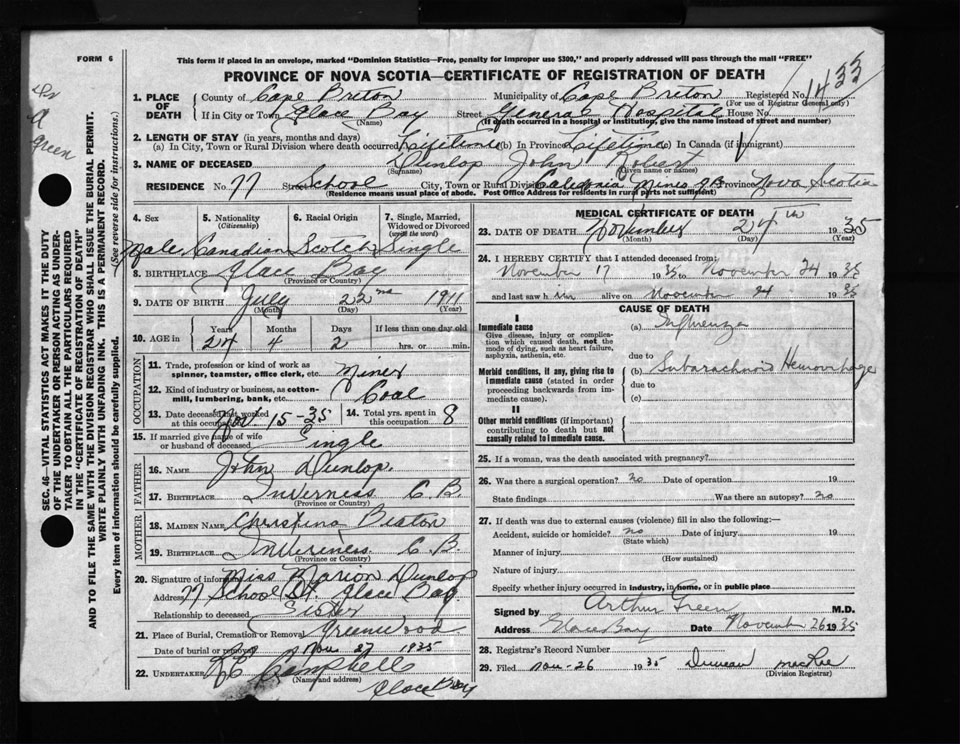 FORM 6
This form if placed in an envelope, marked "Dominion Statistics—Free, penalty for improper use $300," and properly addressed will pass through the mail "FREE"
PROVINCE OF NOVA SCOTIA—CERTIFICATE OF REGISTRATION OF DEATH
1433
A
Green
SEC. 46—VITAL STATISTICS ACT MAKES IT THE DUTY OF THE UNDERTAKER OR PERSON ACTING AS UNDERTAKER TO OBTAIN ALL THE PARTICULARS REQUIRED IN THE "CERTIFICATE OF REGISTRATION OF DEATH" AND TO FILE THE SAME WITH THE DIVISION REGISTRAR WHO SHALL ISSUE THE BURIAL PERMIT.
WRITE PLAINLY WITH UNFADING INK. THIS IS A PERMANENT RECORD.
Every item of information should be carefully supplied. (See reverse side for instructions.)
1. PLACE OF DEATH County of Cape Breton Municipality of Cape Breton Registered No.
(For use of Registrar General only)
If in City or Town Glace Bay Street General Hospital House No.
(Name) (If death occurred in a hospital or institution, give the name instead of street and number)
2. LENGTH OF STAY (in years, months and days)
(a) In City, Town or Rural Division where death occurred Lifetime (b) In Province Lifetime (c) In Canada (if immigrant)
3. NAME OF DECEASED Dunlop John Robert
(Surname) (Given name or names)
RESIDENCE No. 77 Street School City, Town or Rural Division Caledonia Mines G.B. Province Nova Scotia
(Residence means usual place of abode. Post Office Address for residents in rural parts not sufficient)
4. Sex 5. Nationality (Citizenship) 6. Racial Origin 7. Single, Married, Widowed or Divorced (write the word)
Male Canadian Scotch Single
8. BIRTHPLACE Glace Bay
(Province or Country)
9. DATE OF BIRTH July 22nd 1911
(Month) (Day) (Year)
10. AGE in Years Months Days If less than one day old
24 4 2 hrs. or min.
OCCUPATION
11. Trade, profession or kind of work as spinner, teamster, office clerk, etc. Miner
12. Kind of industry or business, as cotton-mill, lumbering, bank, etc. Coal
13. Date deceased last worked at this occupation Nov. 15-35 14. Total yrs. spent in this occupation 8
15. If married give name of wife or husband of deceased Single
FATHER
16. NAME John Dunlop.
17. BIRTHPLACE Inverness C.B.
(Province or Country)
MOTHER
18. MAIDEN NAME Christina Beaton
19. BIRTHPLACE Inverness C.B.
(Province or Country)
20. Signature of informant Miss Marion Dunlop
Address 77 School St. Glace Bay
Relationship to deceased Sister
21. Place of Burial, Cremation or Removal Greenwood
Date of burial or removal Nov. 27 1935
22. UNDERTAKER Campbell
(Name and address)
Glace Bay
MEDICAL CERTIFICATE OF DEATH
23. DATE OF DEATH November 24th 1935
(Month) (Day) (Year)
24. I HEREBY CERTIFY that I attended deceased from:
November 17 1935 to November 24 1935
and last saw him alive on November 24 1935
CAUSE OF DEATH
I
Immediate cause (a) Influenza
Give disease, injury or complication which caused death, not the mode of dying, such as heart failure, asphyxia, asthenia, etc.
due to
Morbid conditions, if any, giving rise to immediate cause (stated in order proceeding backwards from immediate cause). (b) Subarachnoi Hemorrhage
due to
(c)
II
Other morbid conditions (if important) contributing to death but not causally related to immediate cause.
25. If a woman, was the death associated with pregnancy?
26. Was there a surgical operation? no Date of operation 19
State findings Was there an autopsy? no
27. If death was due to external causes (violence) fill in also the following:—
Accident, suicide or homicide? no Date of injury 19
(State which)
Manner of injury
(How sustained)
Nature of injury
Specify whether injury occurred in industry, in home, or in public place
Signed by Arthur Green M.D.
Address Glace Bay Date November 26 1935
28. Registrar's Record Number
29. Filed Nov-26 1935 Duncan MacRae
(Division Registrar)